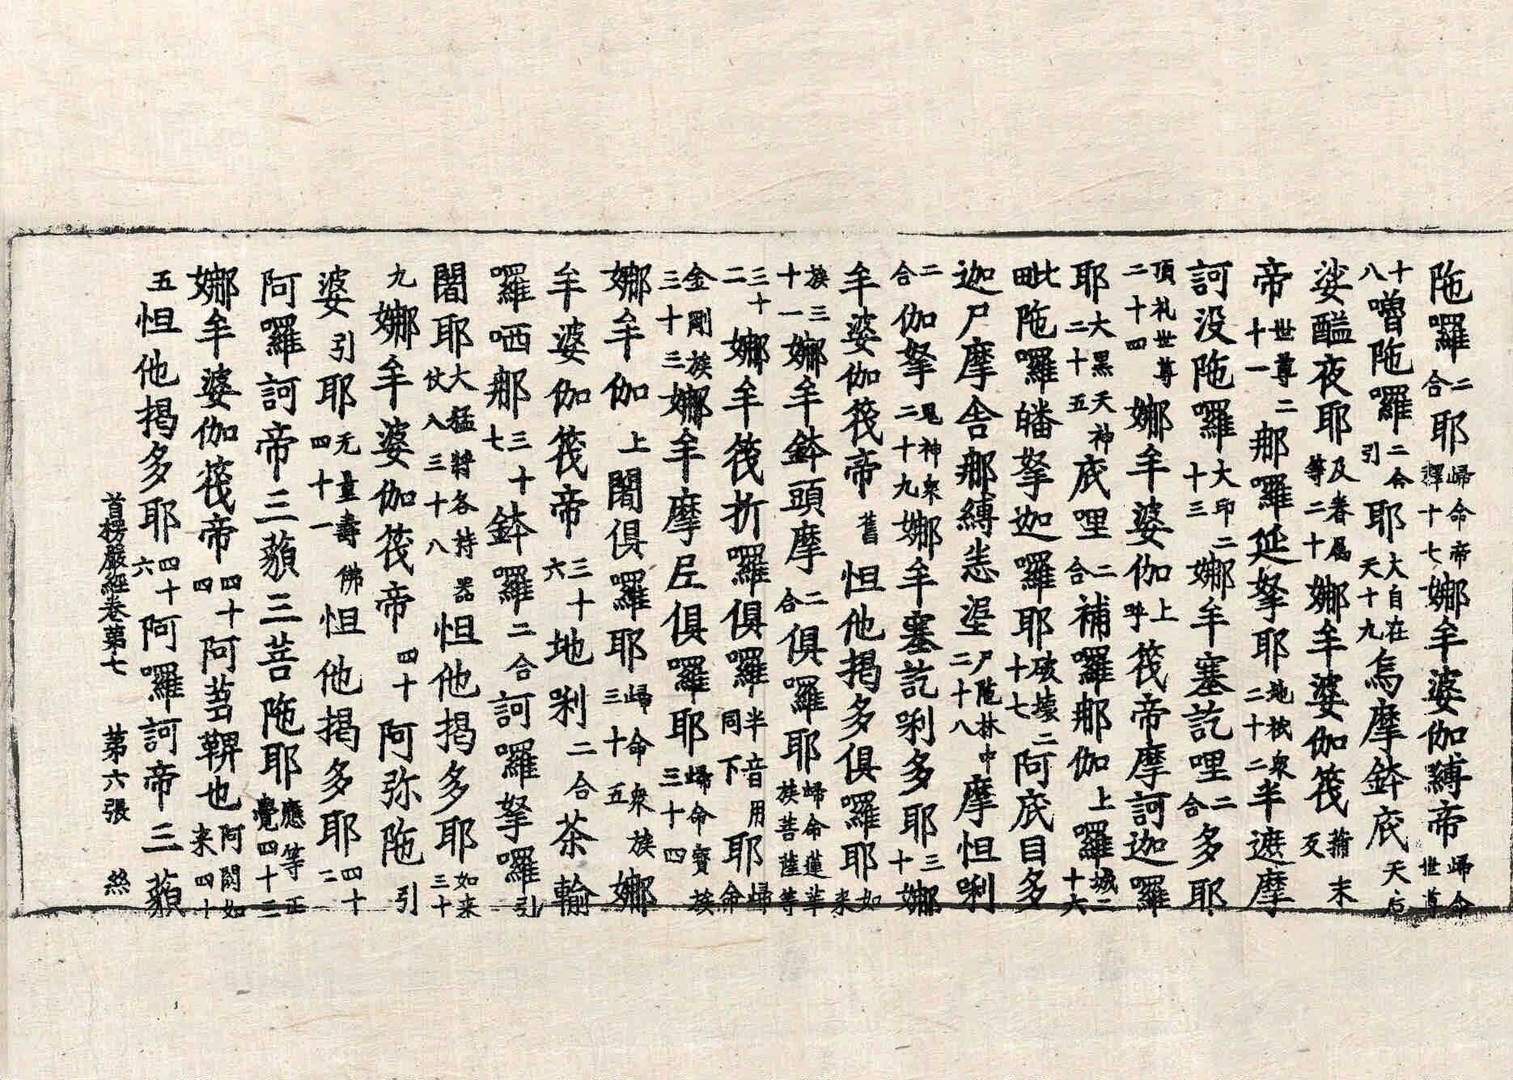 陁囉二合耶歸命帝釋十七娜牟婆伽縛帝歸命世尊
十八嚕陁囉二合引耶大自在天十九烏摩鉢底天后
娑醯夜耶及眷属等二十娜牟婆伽筏蒱末反
帝世尊二十一那囉延拏耶地祇衆二十二半遮摩
訶没陁囉大印二十三娜牟塞訖哩二合多耶
頂礼世尊二十四娜牟婆伽上呼筏帝摩訶迦囉
耶大黒天神二十五底哩二合補囉那伽上囉城二十六
毗陁囉皤拏迦囉耶破壞二十七阿底目多
迦尸摩舍那縛悉埿尸陁林中二十八摩怛唎
二合伽拏鬼神衆二十九娜牟塞訖唎多耶三十娜
牟婆伽筏帝舊怛他揭多俱囉耶如来
族三十一娜牟鉢頭摩二合俱囉耶歸命蓮華族菩薩等
三十二娜牟筏折囉俱囉半音用下同耶歸命
金剛族三十三娜牟摩尼俱囉耶歸命寶族三十四
娜牟伽上闍俱囉耶歸命衆族三十五娜
牟婆伽筏帝三十六地唎二合茶輸
囉哂那三十七鉢囉二合訶囉拏囉引
闍耶大猛將各持器仗入三十八怛他揭多耶如来三十
九娜牟婆伽筏帝四十阿弥陁引
婆引耶无量壽佛四十一怛他揭多耶四十二
阿囉訶帝三藐三菩陁耶應等正覺四十三
娜牟婆伽筏帝四十四阿芻鞞也阿閦如来四十
五怛他揭多耶四十六阿囉訶帝三藐
首楞嚴經卷第七　第六張　絲